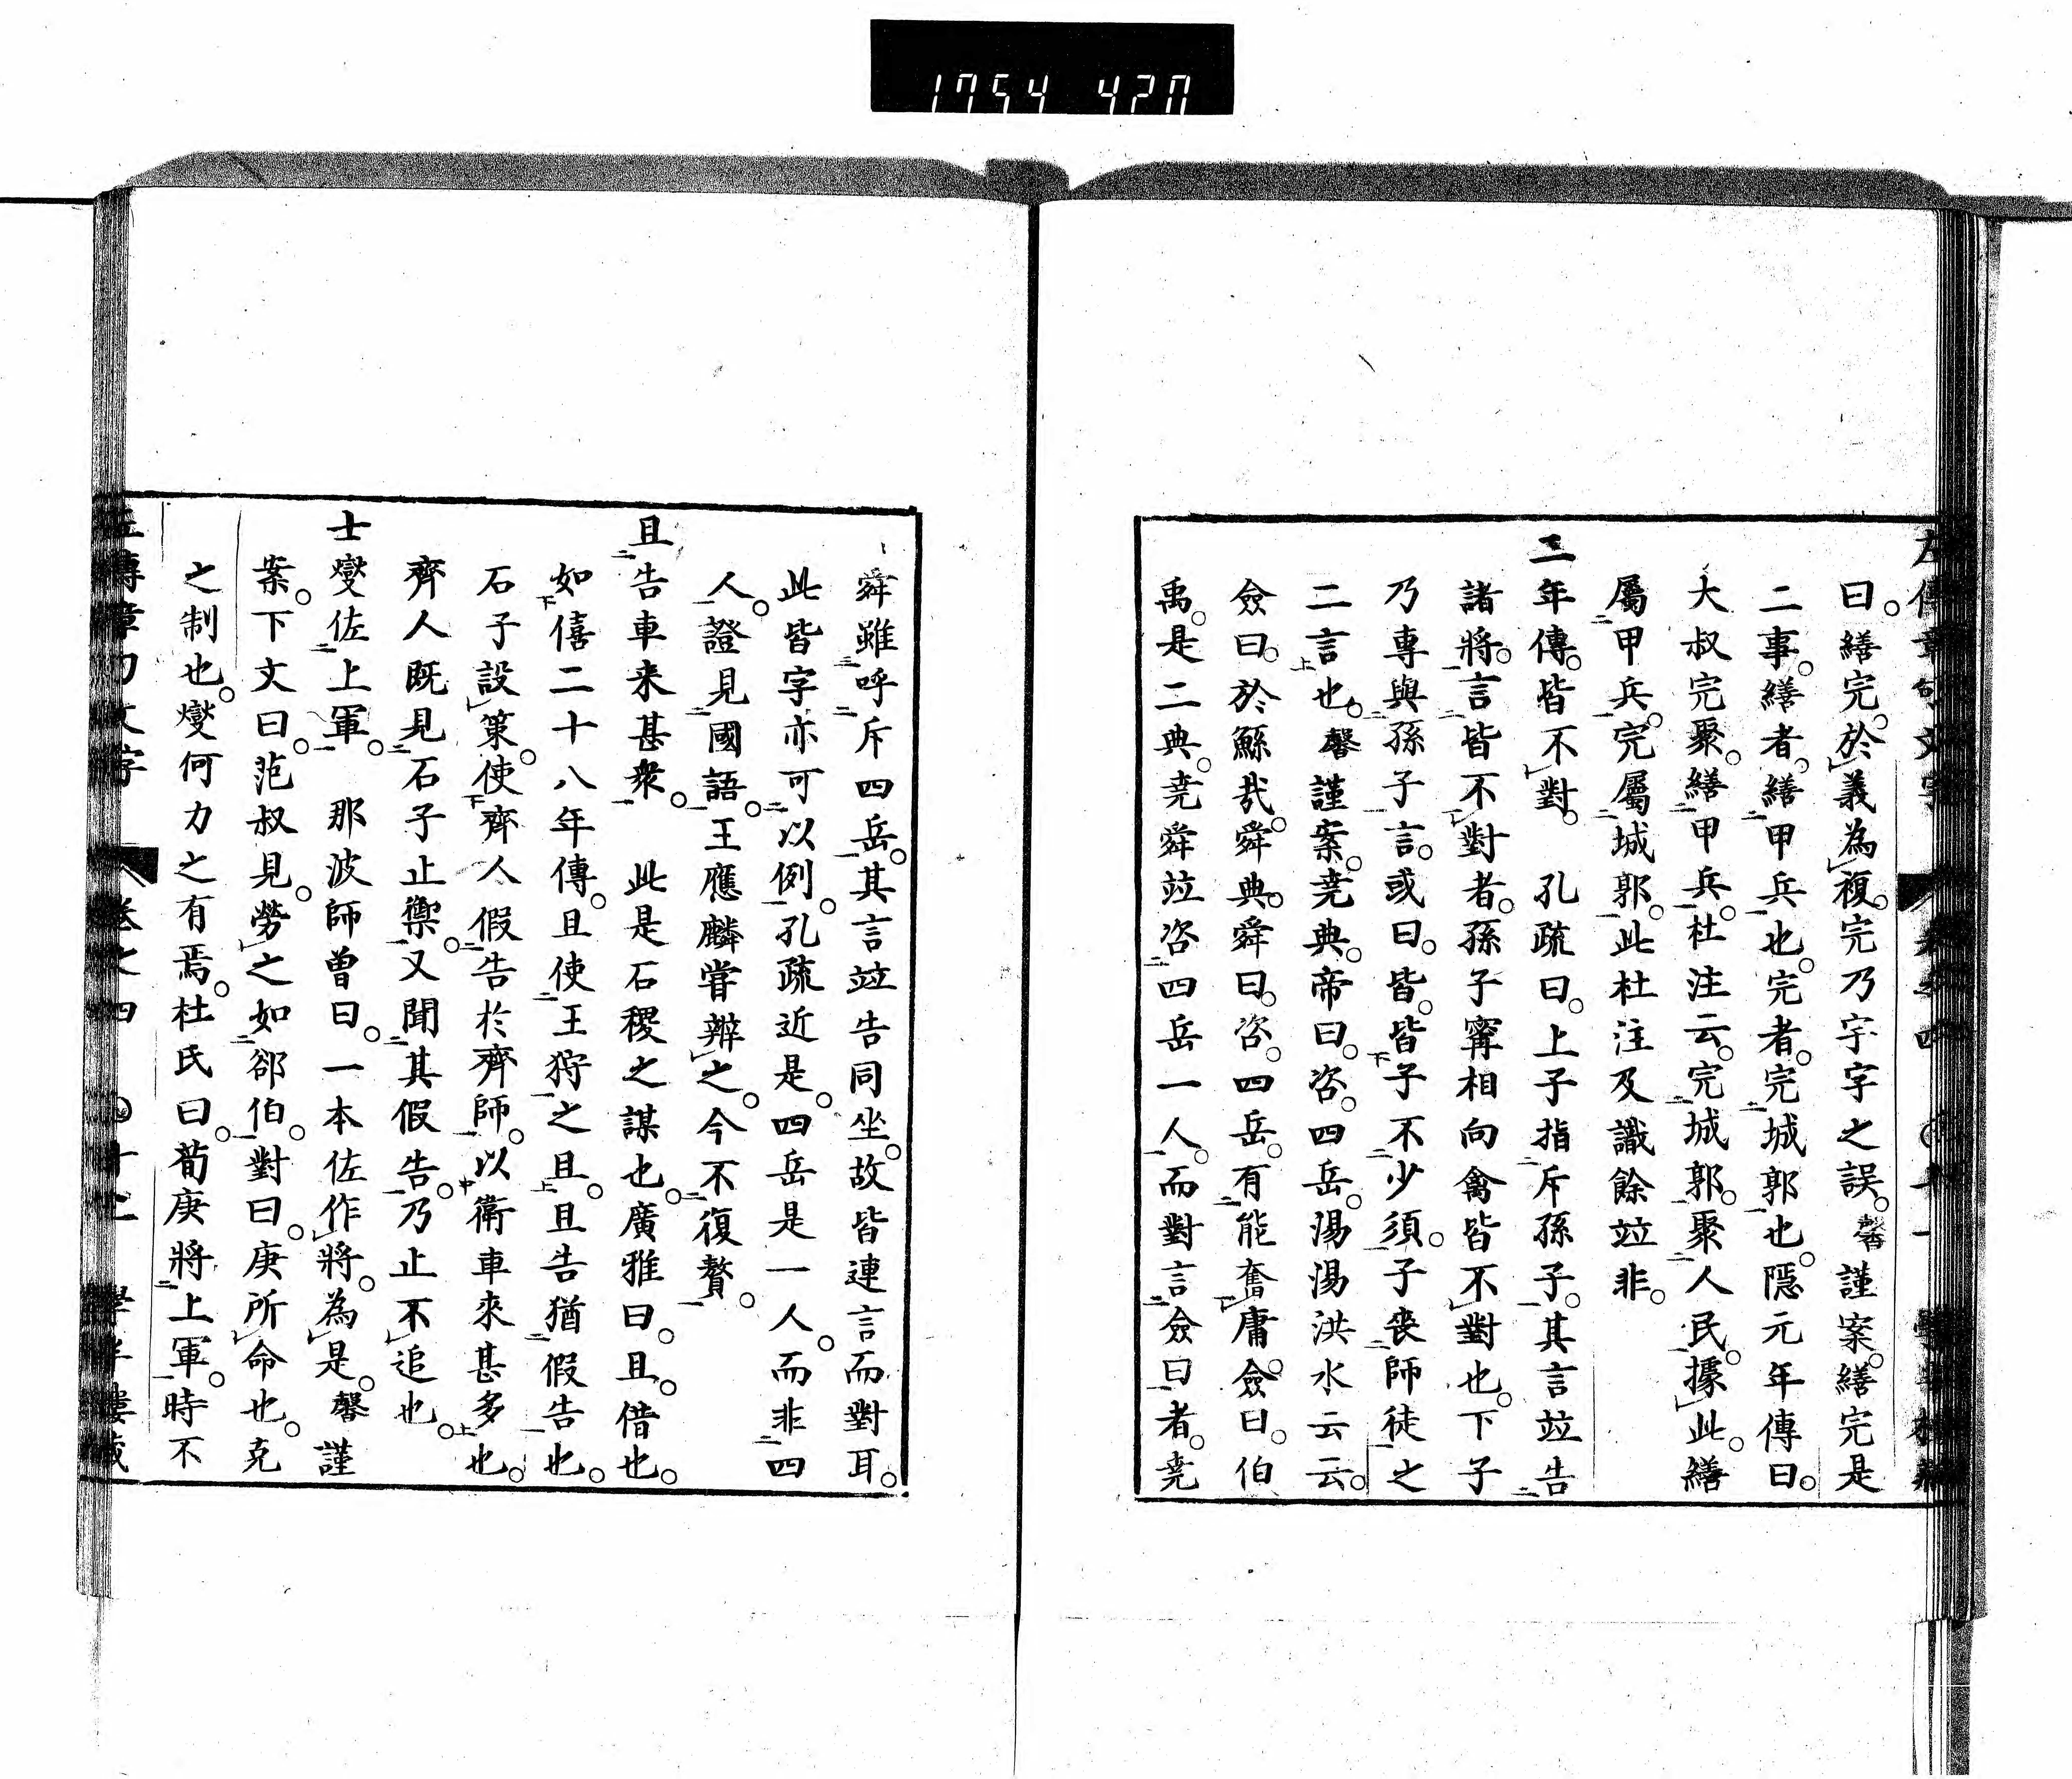 1754 420
曰。繕完。於義為複。完乃宇字之誤。馨謹案。繕完是
二事。繕者。繕甲兵也。完者。完城郭也。隱元年傳曰。
大叔完聚。繕甲兵。杜注云。完城郭。聚人民。據此。繕
屬甲兵。完屬城郭。此杜注及識餘竝非。
二年傳。皆不對。　孔疏曰。上子指斥孫子。其言竝告
諸將。言皆不對者。孫子甯相向禽皆不對也。下子
乃專與孫子言。或曰。皆。皆子不少須。子喪師徒之
二言也。馨謹案。尭典。帝曰。咨。四岳。湯湯洪水云云。
僉曰。於鯀哉。舜典。舜曰。咨。四岳。有能奮庸。僉曰。伯
禹。是二典。尭舜竝咨四岳一人。而對言僉曰者。尭
舜雖呼斥四岳。其言竝告同坐。故皆連言而對耳。
此皆字亦可以例。孔疏近是。四岳是一人。而非四
人。證見國語。王應麟嘗辨之。今不復贅。
且告車来甚衆。　此是石稷之謀也。廣雅曰。且。借也。
如僖二十八年傳。且使王狩之且。且告猶假告也。
石子設策。使齊人假告於齊師。以衛車來甚多也。
齊人既見石子止禦。又聞其假告。乃止不追也。
士燮佐上軍。　那波師曾曰。一本佐作將。為是。馨謹
案。下文曰。范叔見。勞之如郤伯。對曰。庚所命也。克
之制也。燮何力之有焉。杜氏曰。荀庚將上軍。時不
左傳章句文字　卷之四